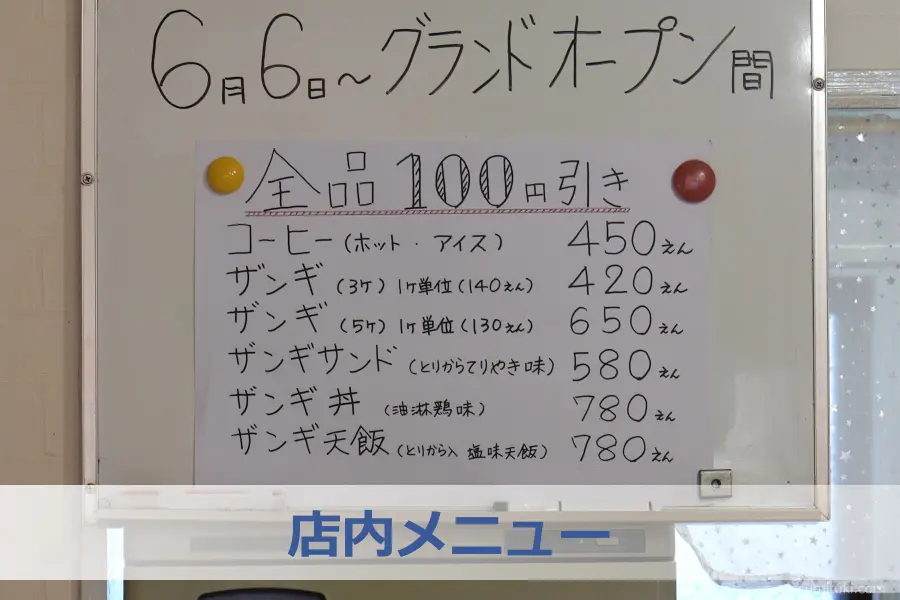 6月6日～グランドオープン間
全品100円引き
コーヒー(ホット・アイス) 450えん
ザンギ(3ケ)1ケ単位(140えん) 420えん
ザンギ(5ケ)1ケ単位(130えん) 650えん
ザンギサンド(とりからてりやき味) 580えん
ザンギ丼(油淋鶏味) 780えん
ザンギ天飯(とりから入 塩味天飯) 780えん
店内メニュー